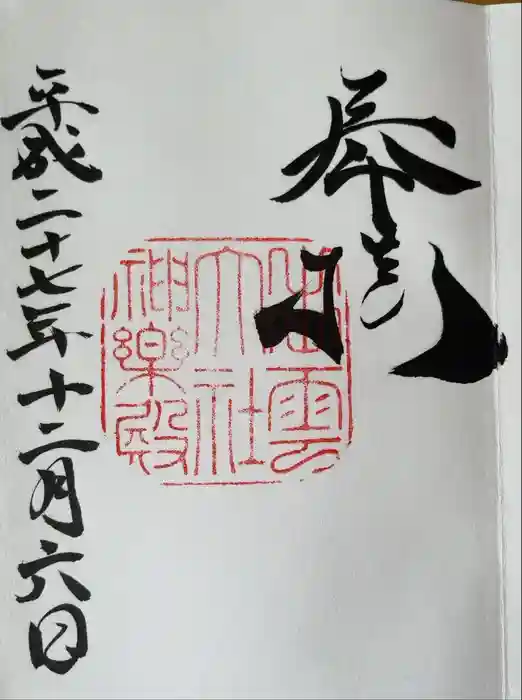 奉拝
出雲
大社
神楽殿
平成二十七年十二月六日